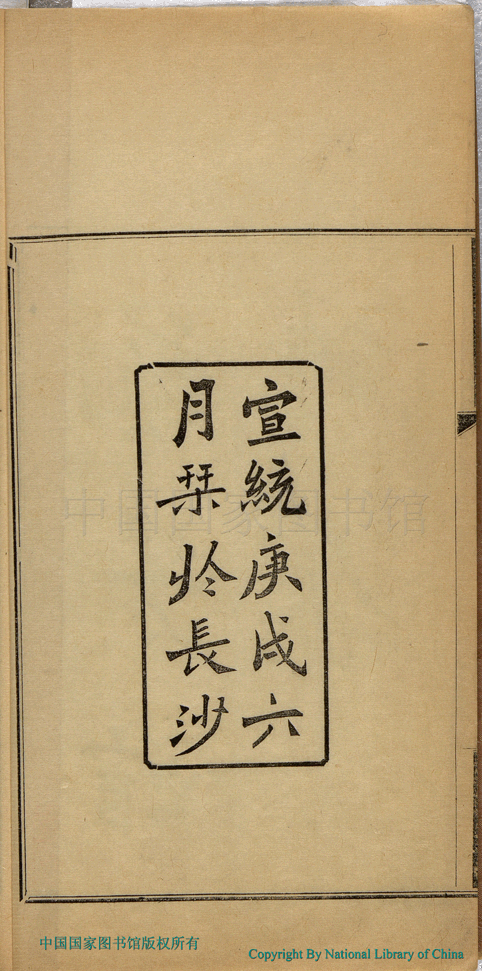 宣統庚戌六
月栞於長沙
中国国家图书馆
中国国家图书馆版权所有
Copyright By National Library of China